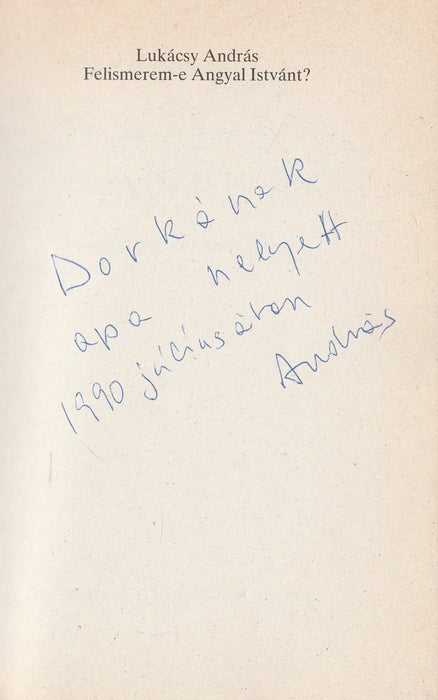 Lukácsy András
Felismerem-e Angyal Istvánt?
Dorkának
apa helyett
1990 júliusában
András